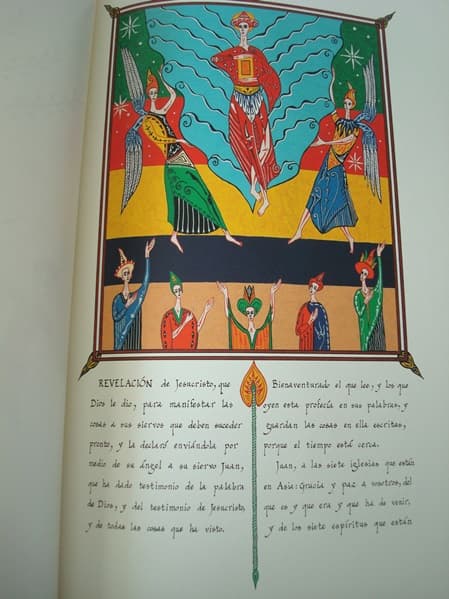 REVELACIÓN de Jesucristo, que
Dios le dio, para manifestar las
cosas a sus siervos que deben suceder
pronto, y la declaró enviándola por
medio de su ángel a su siervo Juan,
que ha dado testimonio de la palabra
de Dios, y del testimonio de Jesucristo,
y de todas las cosas que ha visto.
Bienaventurado el que lee, y los que
oyen esta profecía en sus palabras, y
guardan las cosas en ella escritas,
porque el tiempo está cerca.
Juan, a las siete iglesias que están
en Asia: Gracia y paz a vosotros, del
que es y que era y que ha de venir,
y de los siete espíritus que están